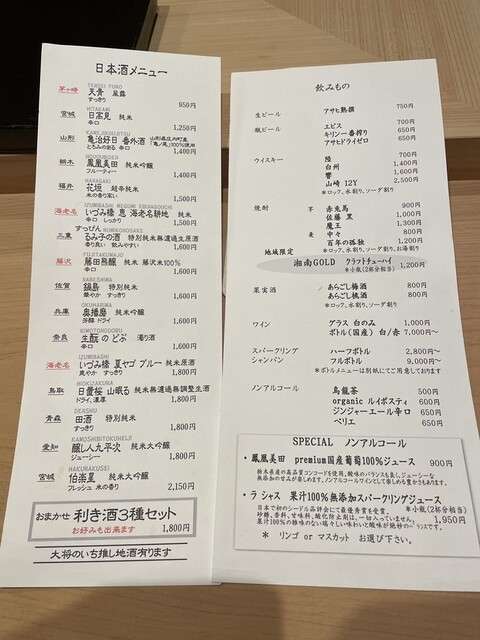 日本酒メニュー
TENSEI FURO
茅ヶ崎 天青 風露
すっきり 950円
HITAKAMI
宮城 日高見 純米
辛口 1,250円
KAMEJIKOUJITSU
山形 亀治好日 番外酒 山形県庄内町産「亀ノ尾」100%使用
とろみのある 辛口 1,400円
HOUOUBIDEN
栃木 鳳凰美田 純米吟醸
フルーティー 1,400円
HANAGAKI
福井 花垣 超辛純米
米の香り 淡い 1,500円
IZUMIBASHI MEGUMI EBINAKOUCHI
海老名 いづみ橋 恵 海老名耕地 純米
辛口 しっかり 1,500円
すっぴん RUMIKONOSAKE
三重 るみ子の酒 特別純米無濾過生原酒
香り良い 飲みやすい 1,600円
FUJITAKUMAJO
藤沢 藤田熊醸 純米 藤沢米100%
辛口 1,600円
NABESHIMA
佐賀 鍋島 特別純米
華やか すっきり 1,600円
OKUHARIMA
兵庫 奥播磨 純米
芳醇 ドライ 1,600円
KIMOTODOBU
奈良 生酛 の どぶ 濁り酒
辛口 1,600円
IZUMIBASHI
海老名 いづみ橋 夏ヤゴ ブルー 純米原酒
爽やか すっきり 1,800円
HIOKIZAKURA
鳥取 日置桜 山眠る 純米無濾過無調整生酒
ドライ、濃厚 1,800円
DENSHU
青森 田酒 特別純米
1,800円
KAMOSHIBITOKUHEIJI
愛知 醸し人九平次 純米大吟醸
ジューシー 1,800円
HAKURAKUSEI
宮城 伯楽星 純米大吟醸
フレッシュ 米の香り 2,150円
おまかせ 利き酒3種セット
お好みも出来ます 1,800円
大将のいち推し地酒有ります
飲みもの
生ビール アサヒ熟撰 750円
瓶ビール エビス 700円
キリン一番搾り 650円
アサヒドライゼロ 650円
ウイスキー 陸 700円
白州 1,400円
響 1,600円
山崎 12Y 2,500円
*ロック、水割り、ソーダ割り
焼酎 芋 赤兎馬 900円
佐藤 黒 1,000円
魔王 1,300円
麦 中々 800円
百年の孤独 1,200円
*ロック、水割り、ソーダ割り、お湯割り
地域限定
湘南GOLD クラフトチューハイ
*小瓶(2杯分相当) 1,200円
果実酒 あらごし梅酒 800円
あらごし桃酒 800円
*ロック、水割り、ソーダ割り
ワイン グラス 白のみ 1,000円
ボトル(国産) 白/赤 7,000円〜
スパークリング ハーフボトル 2,800円〜
シャンパン フルボトル 9,000円〜
*ボトルメニューは別紙にてご用意しております
ノンアルコール 烏龍茶 500円
organic ルイボスティ 600円
ジンジャーエール辛口 650円
ペリエ 650円
SPECIAL ノンアルコール
・鳳凰美田 premium国産葡萄100%ジュース 900円
栃木県産の高品質コンコードを使用。酸味のバランスも良く、ジューシーな
無添加の甘みが楽しめます。ノンアルコールワインとして楽しめる豊かさもあります。
・ラ シャス 果汁100%無添加スパークリングジュース
日本で初のシードル品評会にて最優秀賞を受賞。 *小瓶(2杯分相当)
砂糖、香料、甘味料、酸化防止剤は、一切入っていません。 1,950円
果汁100%の雑味のない瑞々しい味わいと酸味が絶妙のバランスです。
* リンゴ or マスカット お選び下さい。